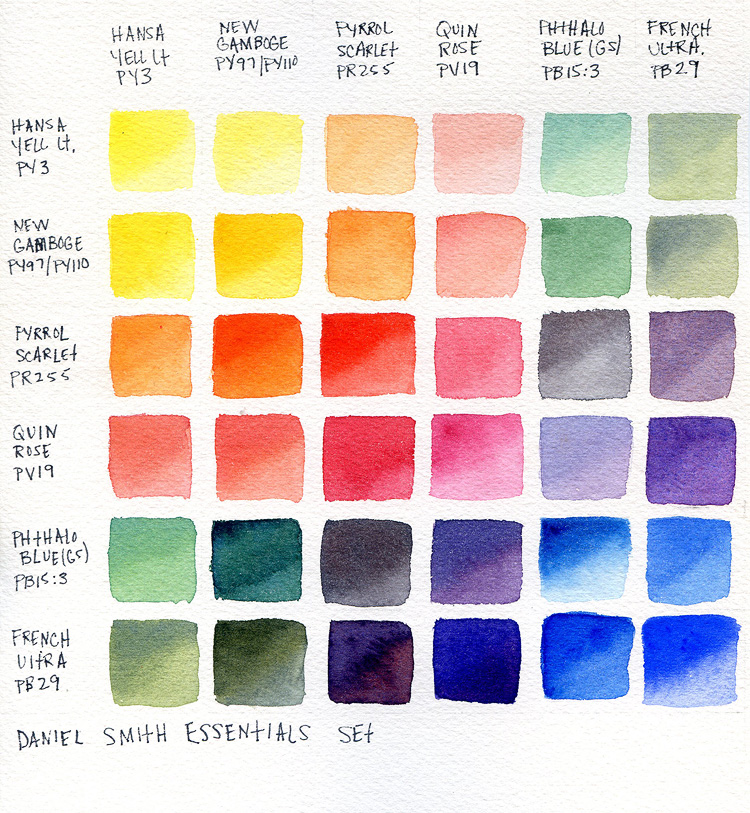 HANSA
YELL Lt
PY3
NEW
GAMBOGE
PY97/PY110
PYRROL
SCARLEt
PR255
QUIN
ROSE
PV19
PHtHALO
BLUE (GS)
PB15:3
FRENCH
ULtRA.
PB29
HANSA
YELL Lt.
PY3
NEW
GAMBOGE
PY97/PY110
PYRROL
SCARLEt
PR255
QUIN
ROSE
PV19
PHtHALO
BLUE(GS)
PB15:3
FRENCH
UltRA
PB29.
DANIEL SMITH ESSENtIALS SEt